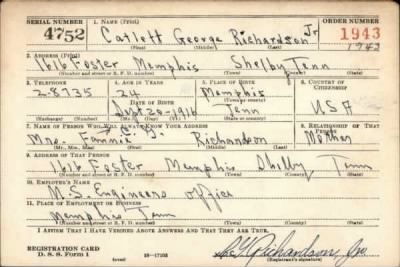 SERIAL NUMBER 1. NAME (Print) ORDER NUMBER
4752 Catlett George Richardson Jr 1943
(First) (Middle) (Last) 1943
2. ADDRESS (Print)
1616 Foster Memphis Shelby Tenn
(Number and street or R. F. D. number) (Town) (County) (State)
3. TELEPHONE 4. AGE IN YEARS 5. PLACE OF BIRTH 6. COUNTRY OF CITIZENSHIP
2-8735 24 Memphis
DATE OF BIRTH (Town or county)
Sept 20-1916 Tenn USA
(Mo.) (Day) (Yr.) (State or country)
7. NAME OF PERSON WHO WILL ALWAYS KNOW YOUR ADDRESS 8. RELATIONSHIP OF THAT PERSON
Mrs. Fannie Richardson Mother
(Mr., Mrs., Miss) (First) (Middle) (Last)
9. ADDRESS OF THAT PERSON
1616 Foster Memphis Shelby Tenn
(Number and street or R. F. D. number) (Town) (County) (State)
10. EMPLOYER'S NAME
U.S. Engineers office
11. PLACE OF EMPLOYMENT OR BUSINESS
Memphis Tenn
(Number and street or R. F. D. number) (Town) (County) (State)
I AFFIRM THAT I HAVE VERIFIED ABOVE ANSWERS AND THAT THEY ARE TRUE.
REGISTRATION CARD
D. S. S. Form 1 Richardson Jr.
(over) (Registrant's signature)